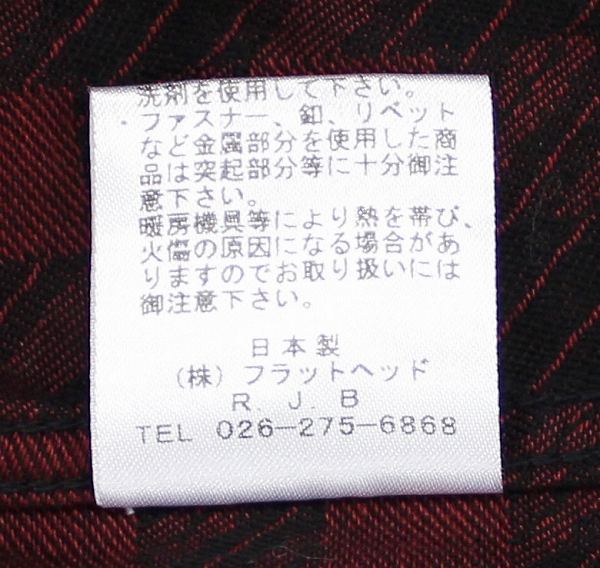 洗剤を使用して下さい。
・ファスナー、釦、リベット
など金属部分を使用した商
品は突起部分等に十分御注
意下さい。
暖房機具等により熱を帯び、
火傷の原因になる場合があ
りますのでお取り扱いには
御注意下さい。
日本製
(株)フラットヘッド
R．J．B
TEL 026-275-6868